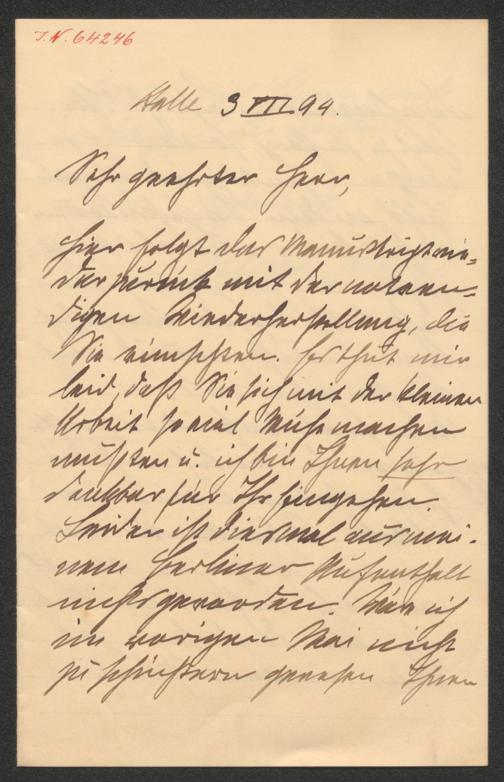 J.N. 64246
Halle 3 VII 94.
Sehr geehrter Herr,
hier folgt das Manuskript wie-
der zurück mit der notwen-
digen Wiederherstellung, die
Sie wünschten. Es thut mir
leid, daß Sie sich mit der kleinen
Arbeit so viel Mühe machen
mußten u. ich bin Ihnen sehr
dankbar für Ihr Eingehen.
Leider ist diesmal aus mei-
nem Berliner Aufenthalt
nichts geworden. Wäre ich
im vorigen Mai nicht
zu schüchtern gewesen Ihnen